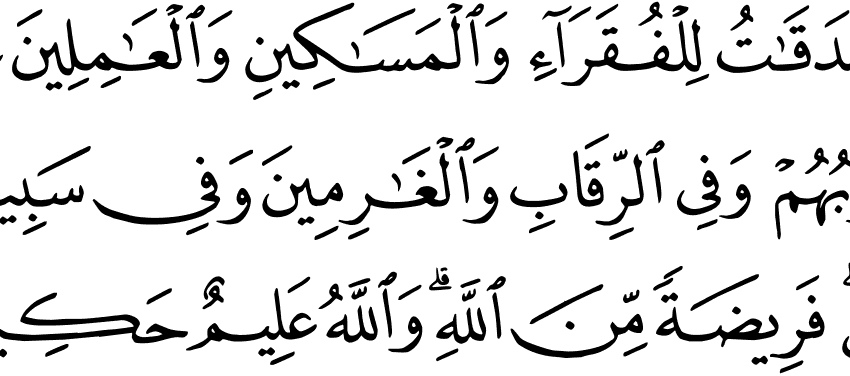 دَقَٰتُ لِلۡفُقَرَآءِ وَٱلۡمَسَٰكِينِ وَٱلۡعَٰمِلِينَ
وبُهُمۡ وَفِي ٱلرِّقَابِ وَٱلۡغَٰرِمِينَ وَفِي سَبِي
فَرِيضَةٗ مِّنَ ٱللَّهِۗ وَٱللَّهُ عَلِيمٌ حَكِي